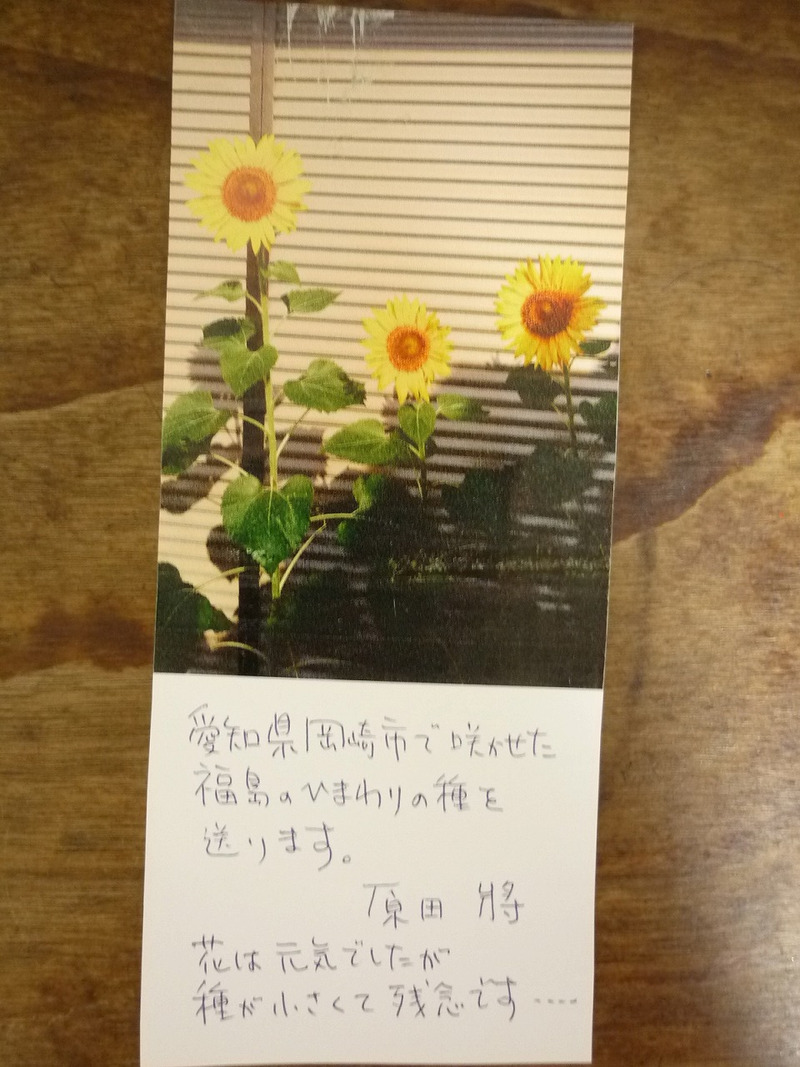 愛知県岡崎市で咲かせた
福島のひまわりの種を
送ります。
原田 將
花は元気でしたが
種が小さくて残念です‥‥